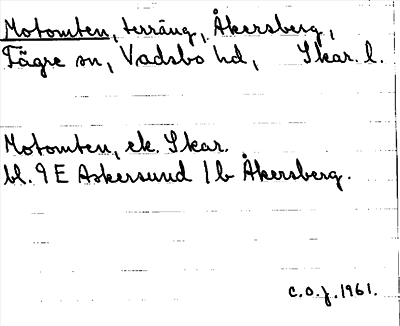 Motomten, terräng, Åkersberg,
Fägre sn, Vadsbo hd, Skar. l.
Motomten, ek. Skar.
bl. 9 E Askersund 1b Åkersberg.
C.O.J. 1961.